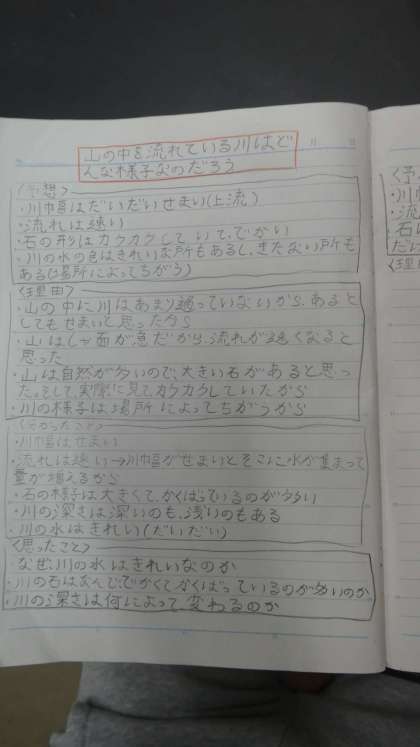 山の中を流れている川はど
んな様子なのだろう
〈予想〉
・川幅はだいだいせまい(上流)
・流れは速い
・石の形はカクカクしていて、でかい
・川の水の色はきれいな所もあるし、きたない所も
ある(場所によってちがう)
〈理由〉
・山の中に川はあまり通っていないから、あると
してもせまいと思ったから
・山はしゃ面が急だから、流れが速くなると
思った
・山は自然が多いので、大きい石があると思っ
た。そして、実際に見てカクカクしていたから
・川の様子は場所によってちがうから
〈分かったこと〉
・川幅はせまい
・流れは速い→川幅がせまいとそこに水が集まって
量が増えるから
・石の様子は大きくて、かくばっているのが多い
・川の深さは深いのも、浅いのもある
・川の水はきれい(だいだい)
〈思ったこと〉
・なぜ、川の水はきれいなのか
・川の石はなんで、でかくてかくばっているのが多いのか
・川の深さは何によって変わるのか
〈予
・川
・流
・石
〈理